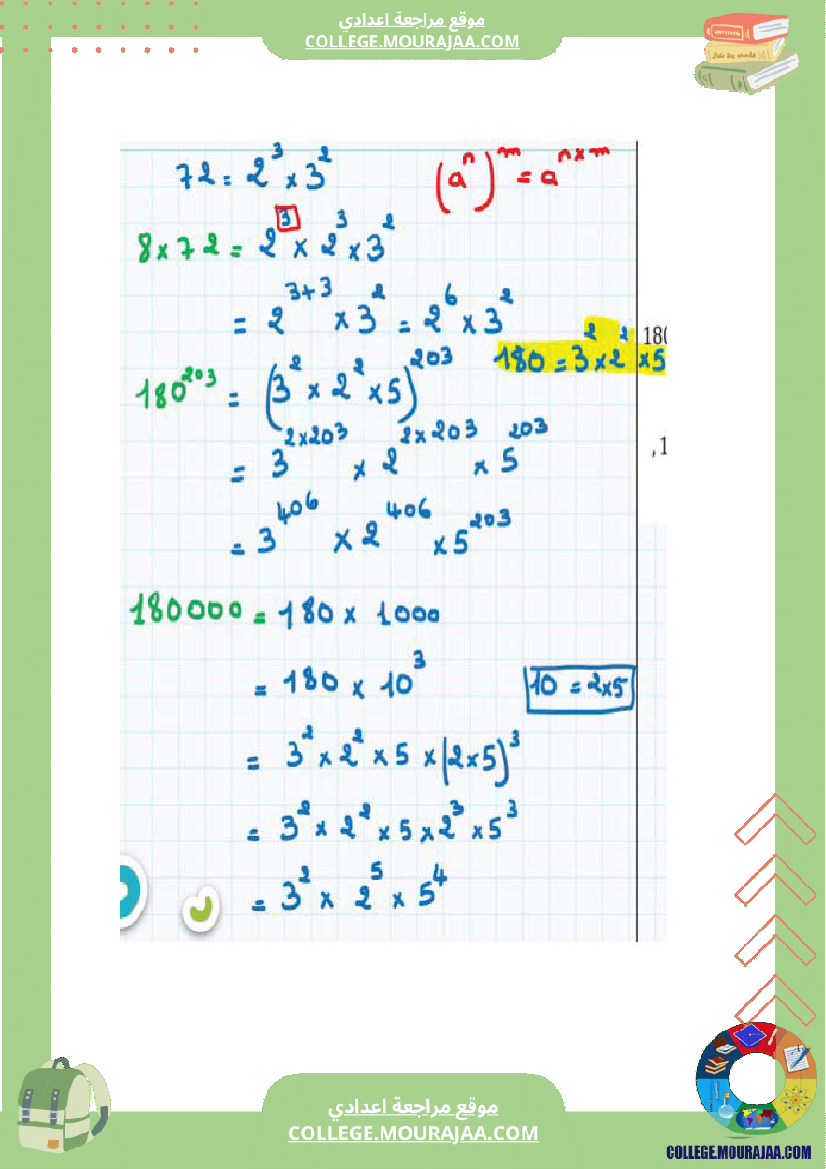 موقع مراجعة اعدادي
COLLEGE.MOURAJAA.COM
72 = 2³ × 3²
(aⁿ)ᵐ = aⁿˣᵐ
8 × 72 = 2³ × 2³ × 3²
= 2³⁺³ × 3² = 2⁶ × 3²
180 = 3² × 2² × 5
180²⁰³ = (3² × 2² × 5)²⁰³
= 3²ˣ²⁰³ × 2²ˣ²⁰³ × 5²⁰³
= 3⁴⁰⁶ × 2⁴⁰⁶ × 5²⁰³
180000 = 180 × 1000
= 180 × 10³
10 = 2×5
= 3² × 2² × 5 × (2×5)³
= 3² × 2² × 5 × 2³ × 5³
= 3² × 2⁵ × 5⁴
موقع مراجعة اعدادي
COLLEGE.MOURAJAA.COM
COLLEGE.MOURAJAA.COM